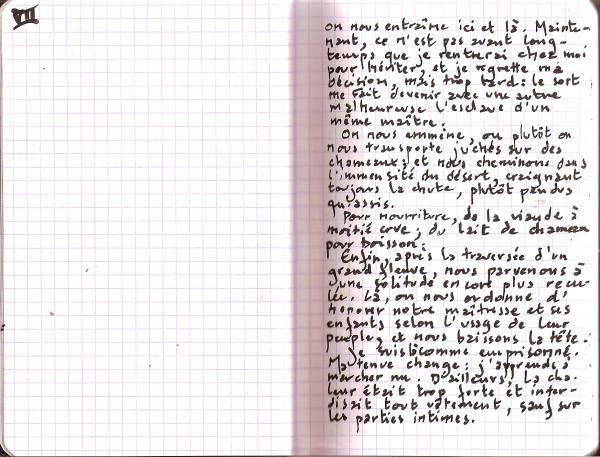 VII
on nous entraîne ici et là. Mainte-
nant, ce n'est pas avant long-
temps que je rentrerai chez moi
pour hériter, et je regrette ma
décision, mais trop tard : le sort
me fait devenir avec une autre
malheureuse l'esclave d'un
même maître.
On nous emmène, ou plutôt on
nous transporte juchés sur des
chameaux ; et nous cheminons dans
l'immensité du désert, craignant
toujours la chute, plutôt pendus
qu'assis.
Pour nourriture, de la viande à
moitié crue ; du lait de chameau
pour boisson.
Enfin, après la traversée d'un
grand fleuve, nous parvenons à
une solitude encore plus recu-
lée. Là, on nous ordonne d'
honorer notre maîtresse et ses
enfants selon l'usage de leur
peuple, et nous baissons la tête.
Je suis comme emprisonné.
Ma tenue change : j'apprends à
marcher nu. D'ailleurs, la cha-
leur était trop forte et inter-
disait tout vêtement, sauf sur
les parties intimes.